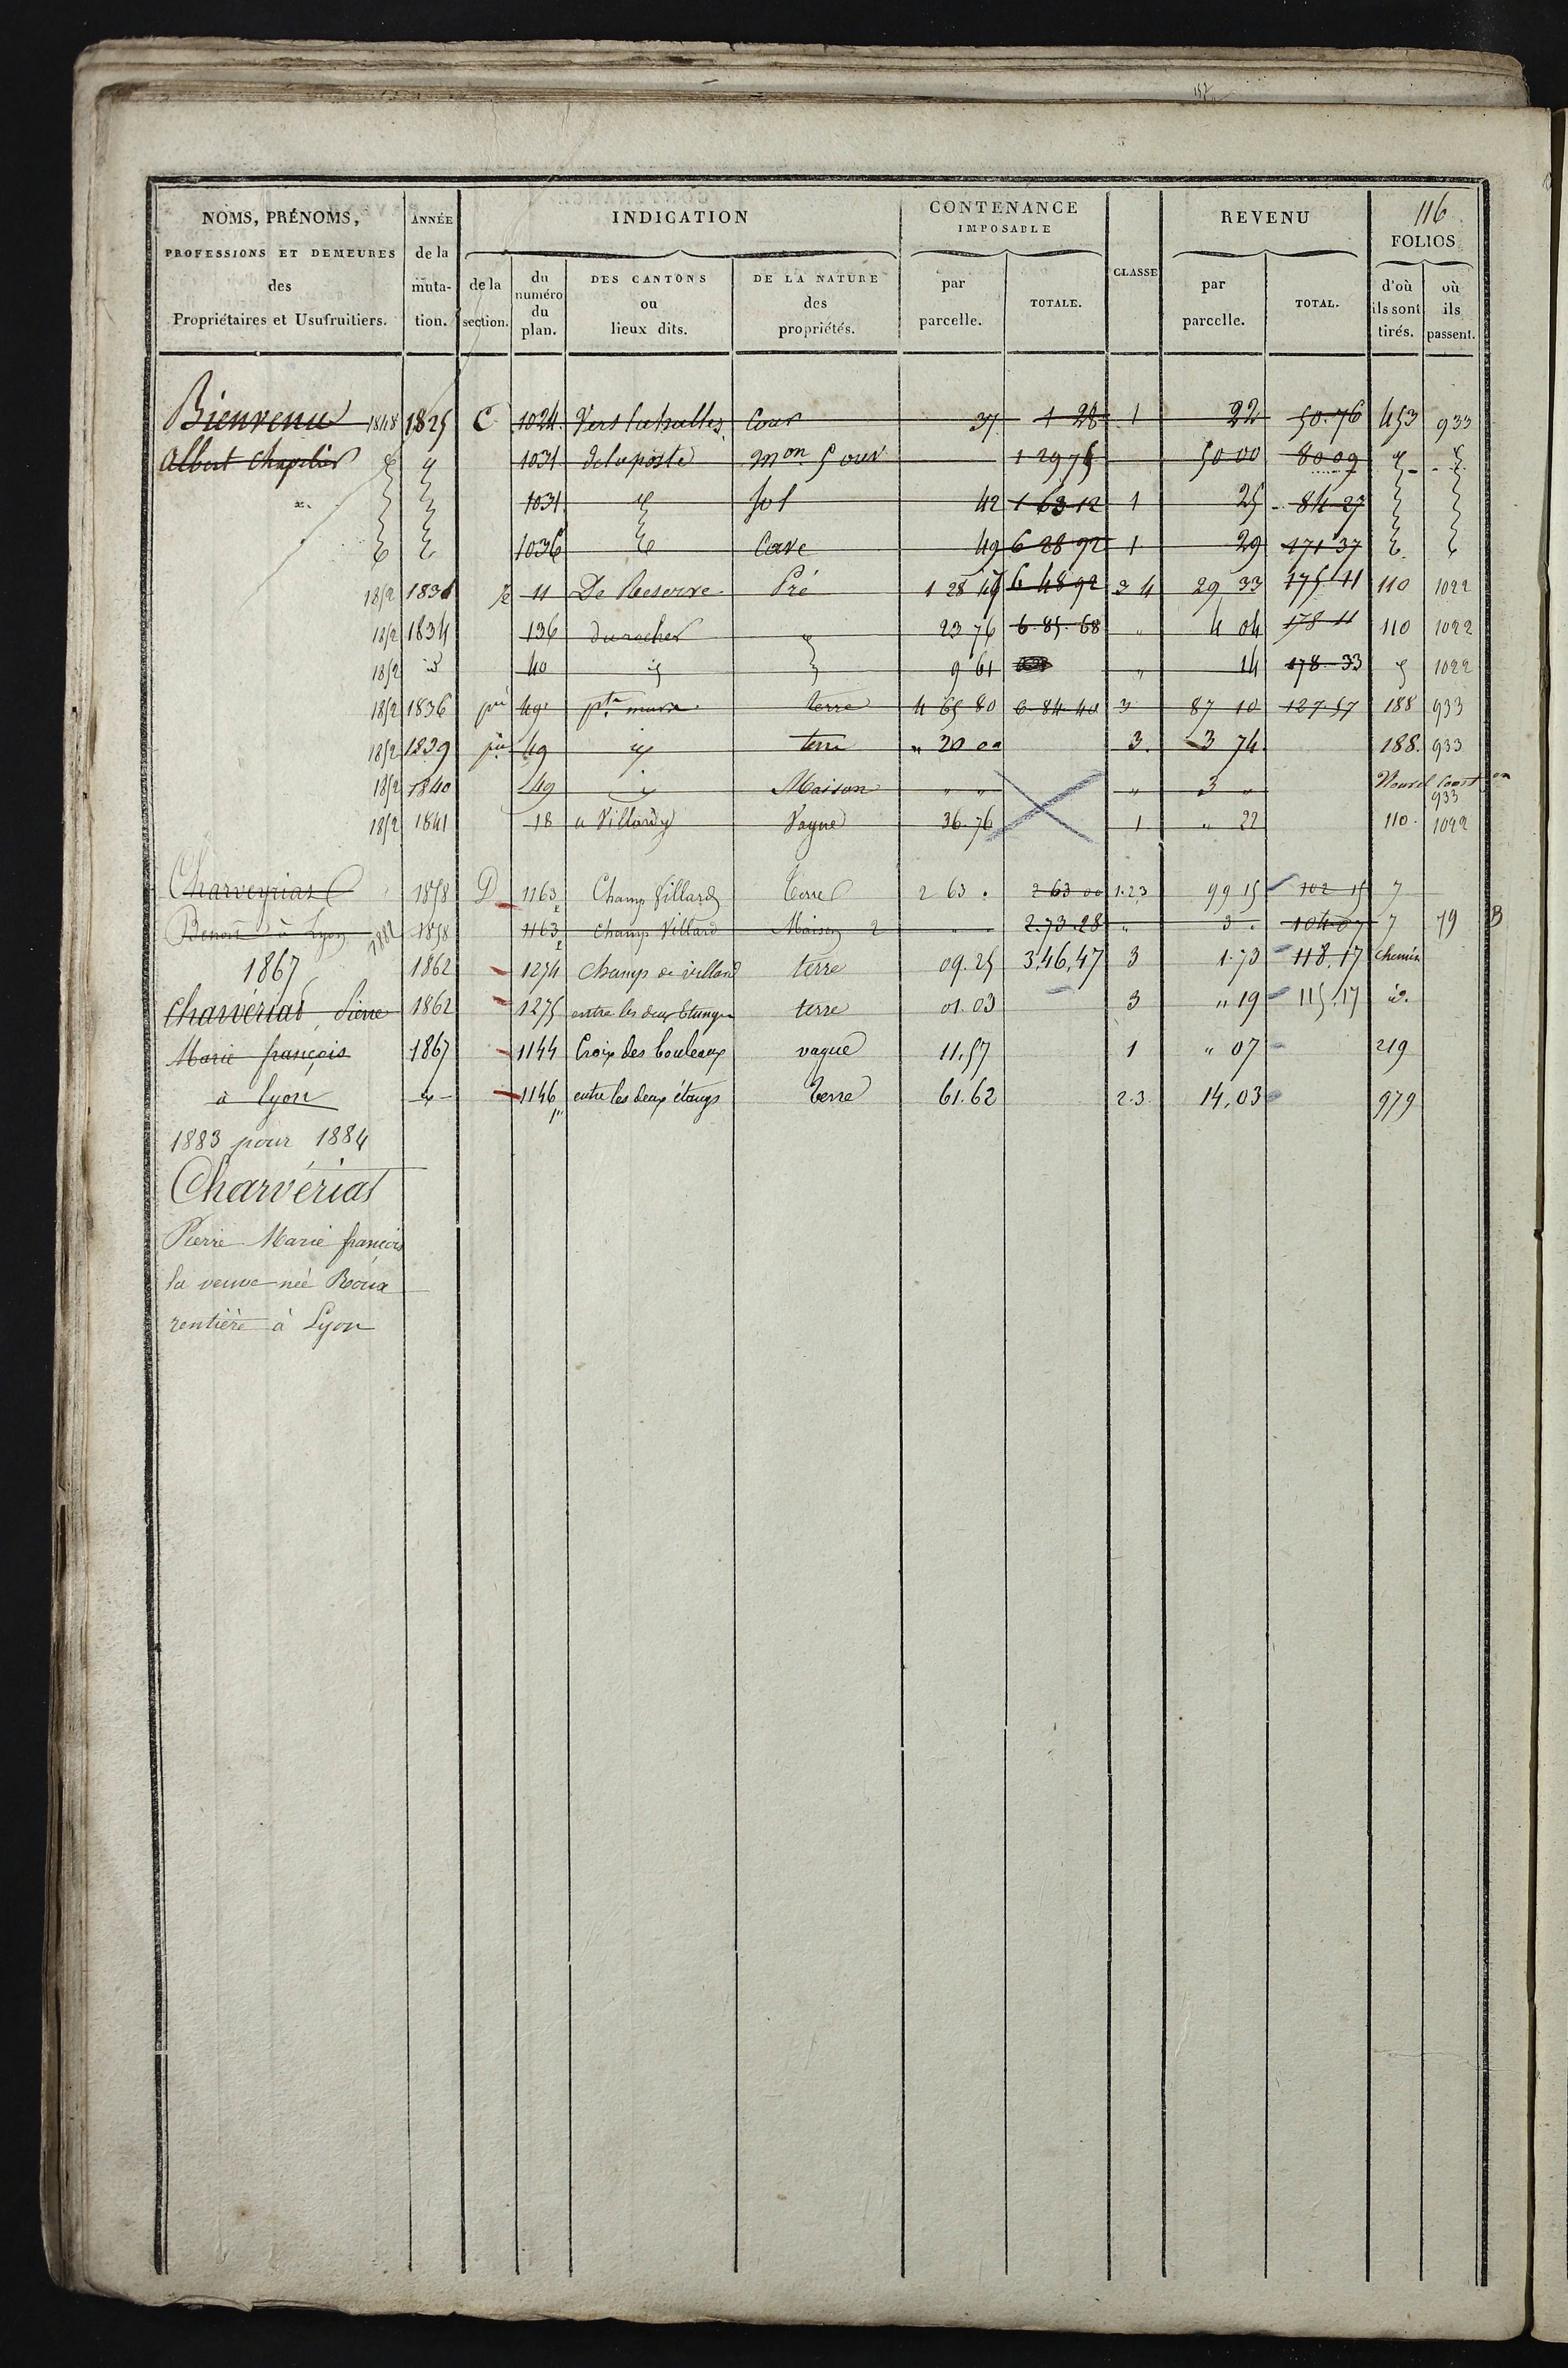 116
NOMS, PRÉNOMS, PROFESSIONS ET DEMEURES des Propriétaires et Usufruitiers.
ANNÉE de la muta- tion.
INDICATION
de la section.
du numéro du plan.
DES CANTONS ou lieux dits.
DE LA NATURE des propriétés.
CONTENANCE IMPOSABLE
par parcelle.
TOTALE.
CLASSE
REVENU
par parcelle.
TOTAL.
FOLIOS
d'où ils sont tirés.
où ils passent.
Bienvenu 1848 1825 C 1024 Vers les halles Cour 37 1 28 1 22 50.76 453 933
Albert chapelier 1031 de la poste mon 5 ouv 1 29 75 50 00 80 09
1031 sol 42 1 63 12 1 25 84 27
1036 Cave 49 6 28 92 1 29 171 37
1852 11 De Reserve Pré 1 28 6 48 92 3 4 29 33 175 11 110 1022
1852 1834 136 du rocher 23 76 6.85.68 " 4 04 178 11 110 1022
1852 id 40 9 61 " 14 178 33 1022
1852 1836 49 terre 4 65 80 6 84 40 3 87 10 127.57 188 933
1852 1839 49 terre " 20 00 3. 3 74 188. 933
1852 1840 49 Maison " " " 3 " Nouvel Const on 933
1852 1841 18 Vague 36.76 1 " 22 110. 1022
Charveyriat 1858 D 1163 Champ Villard Terre 2 63 . 2 63 00 1.2.3 99 15 102 15 7
Benoit à Lyon 1882 1858 1163 Champ Villard Maison 2 2.73.28 " 3 . 104.07 7 79 B
1867 1862 1274 Champ de villard terre 09.25 3,46,47 3 1.73 118.17 chemin
Charvériat Pierre 1862 1275 entre les deux Etangs terre 01.03 3 " 19 115.17 id.
Marie françois 1867 1144 Croix des bouleaux vague 11.57 1 " 07 219
à Lyon 1146 entre les deux étangs Terre 61.62 2.3. 14,03 979
1883 pour 1884
Charvériat
Pierre Marie françois
la veuve née Roux
rentière à Lyon